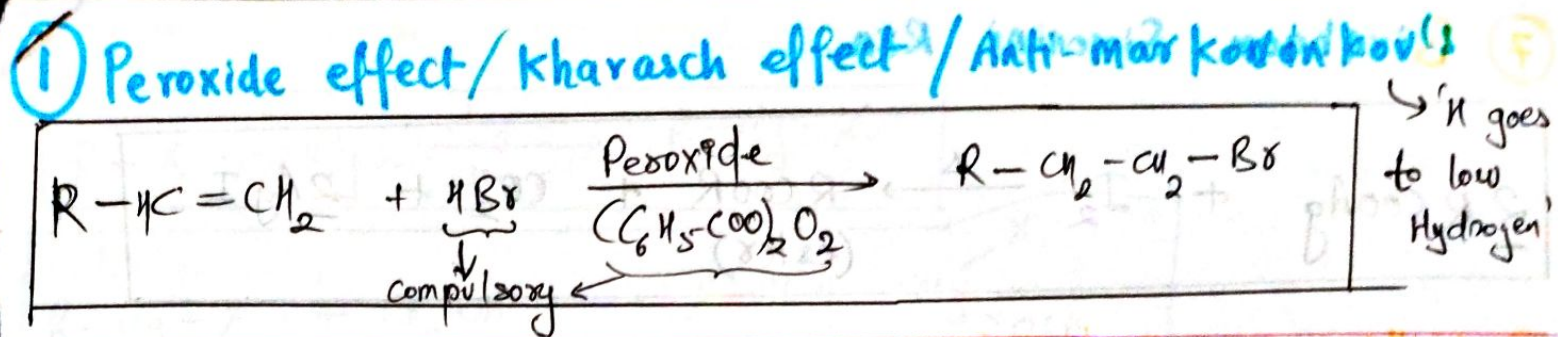 ① Peroxide effect/Kharasch effect/Anti-markovnikov's
↳ 'H goes to low Hydrogen'
R-HC=CH₂ + HBr Peroxide (C₆H₅-COO)₂O₂ → R-CH₂-CH₂-Br
compulsory